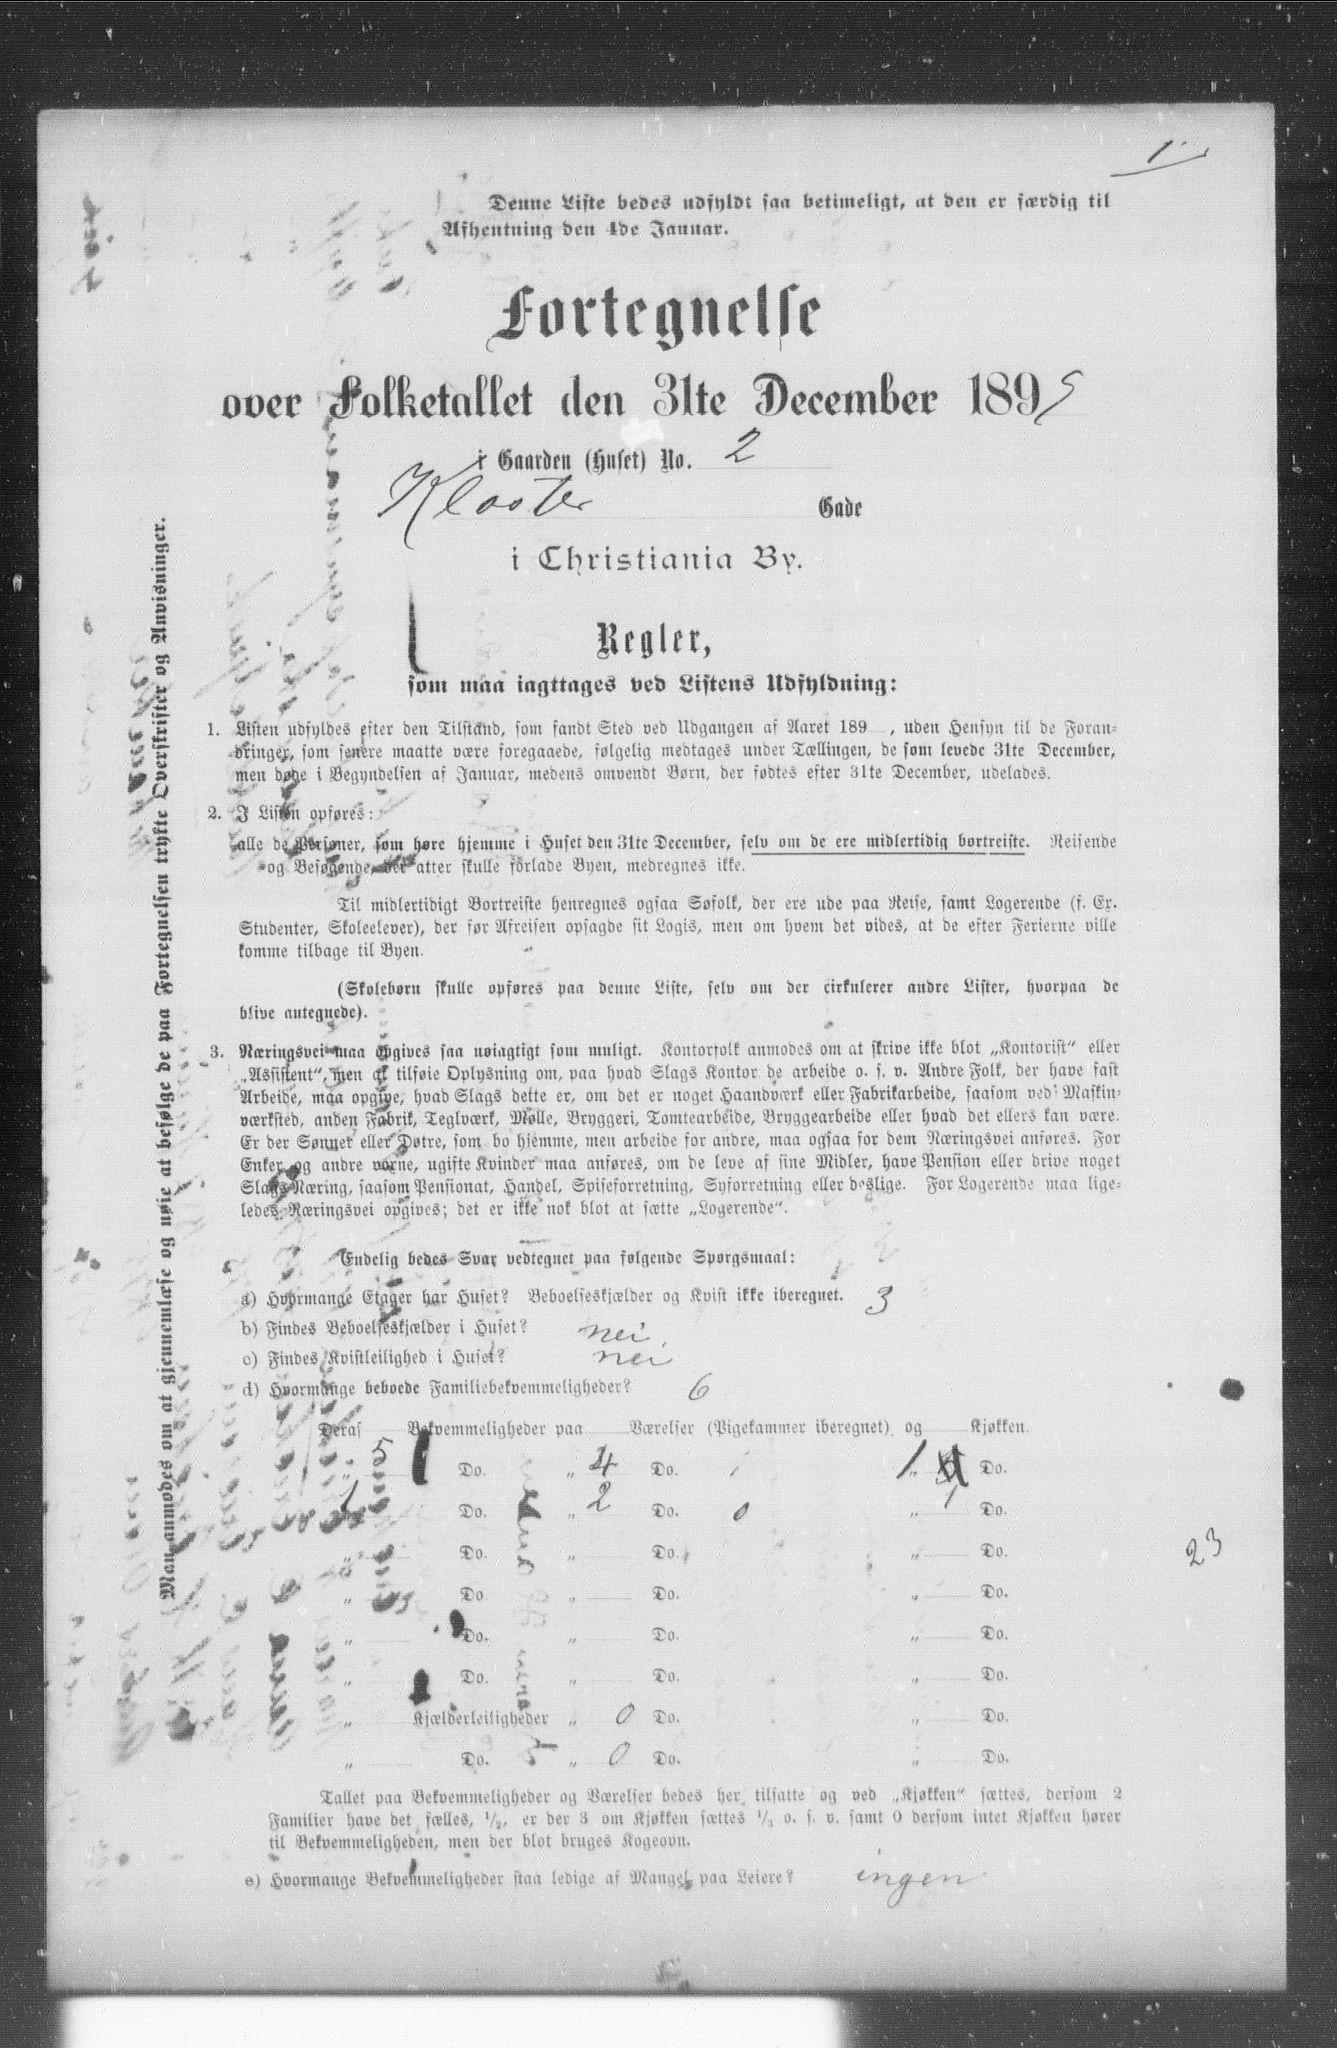 1
Denne Liste bedes udfyldt saa betimeligt, at den er færdig til
Afhentning den 4de Januar.
Fortegnelse
over Folketallet den 31te December 1895
i Gaarden (Huset) No. 2
Kloster Gade
i Christiania By.
Regler,
som maa iagttages ved Listens Udfyldning:
1. Listen udfyldes efter den Tilstand, som fandt Sted ved Udgangen af Aaret 189 , uden Hensyn til de Foran-
dringer, som senere maatte være foregaaede, følgelig medtages under Tællingen, de som levede 31te December,
men døde i Begyndelsen af Januar, medens omvendt Børn, der fødtes efter 31te December, udelades.
2. I Listen opføres:
alle de Personer, som høre hjemme i Huset den 31te December, selv om de ere midlertidig bortreiste. Reisende
og Besøgende, der atter skulle forlade Byen, medregnes ikke.
Til midlertidigt Bortreiste henregnes ogsaa Søfolk, der ere ude paa Reise, samt Logerende (f. Ex.
Studenter, Skoleelever), der før Afreisen opsagde sit Logis, men om hvem det vides, at de efter Ferierne ville
komme tilbage til Byen.
(Skolebørn skulle opføres paa denne Liste, selv om der cirkulerer andre Lister, hvorpaa de
blive antegnede).
3. Næringsvei maa opgives saa nøiagtigt som muligt. Kontorfolk anmodes om at skrive ikke blot „Kontorist“ eller
„Assistent“, men at tilføie Oplysning om, paa hvad Slags Kontor de arbeide o. s. v. Andre Folk, der have fast
Arbeide, maa opgive, hvad Slags dette er, om det er noget Haandværk eller Fabrikarbeide, saasom ved Maskin-
værksted, anden Fabrik, Teglværk, Mølle, Bryggeri, Tomtearbeide, Bryggearbeide eller hvad det ellers kan være.
Er der Sønner eller Døtre, som bo hjemme, men arbeide for andre, maa ogsaa for dem Næringsvei anføres. For
Enker og andre voxne, ugifte Kvinder maa anføres, om de leve af sine Midler, have Pension eller drive noget
Slags Næring, saasom Pensionat, Handel, Spiseforretning, Syforretning eller deslige. For Logerende maa lige-
ledes Næringsvei opgives; det er ikke nok blot at sætte „Logerende“.
Endelig bedes Svar vedtegnet paa følgende Spørgsmaal:
a) Hvormange Etager har Huset? Beboelseskjælder og Kvist ikke iberegnet. 3
b) Findes Beboelseskjælder i Huset? nei
c) Findes Kvistleilighed i Huset? nei
d) Hvormange beboede Familiebekvemmeligheder? 6
Deraf Bekvemmeligheder paa Værelser (Pigekammer iberegnet) og Kjøkken.
„ 5 Do. „ 4 Do. „ 1 Do.
1 Do. „ 2 Do. 0 „ 1 Do.
„ Do. „ Do. „ Do.
23
„ Do. „ Do. „ Do.
„ Do. „ Do. „ Do.
„ Do. „ Do. „ Do.
„ Kjælderleiligheder „ 0 Do. „ Do.
„ Do. „ 0 Do. „ Do.
Tallet paa Bekvemmeligheder og Værelser bedes her tilsatte og ved „Kjøkken“ sættes, dersom 2
Familier have det fælles, 1/2, er der 3 om Kjøkken sættes 1/3 o. s. v. samt 0 dersom intet Kjøkken hører
til Bekvemmeligheden, men der blot bruges Kogeovn.
e) Hvormange Bekvemmeligheder staa ledige af Mangel paa Leiere? ingen
Man anmodes om at gjennemlæse og nøie at befølge de paa Fortegnelsen trykte Overskrifter og Anvisninger.